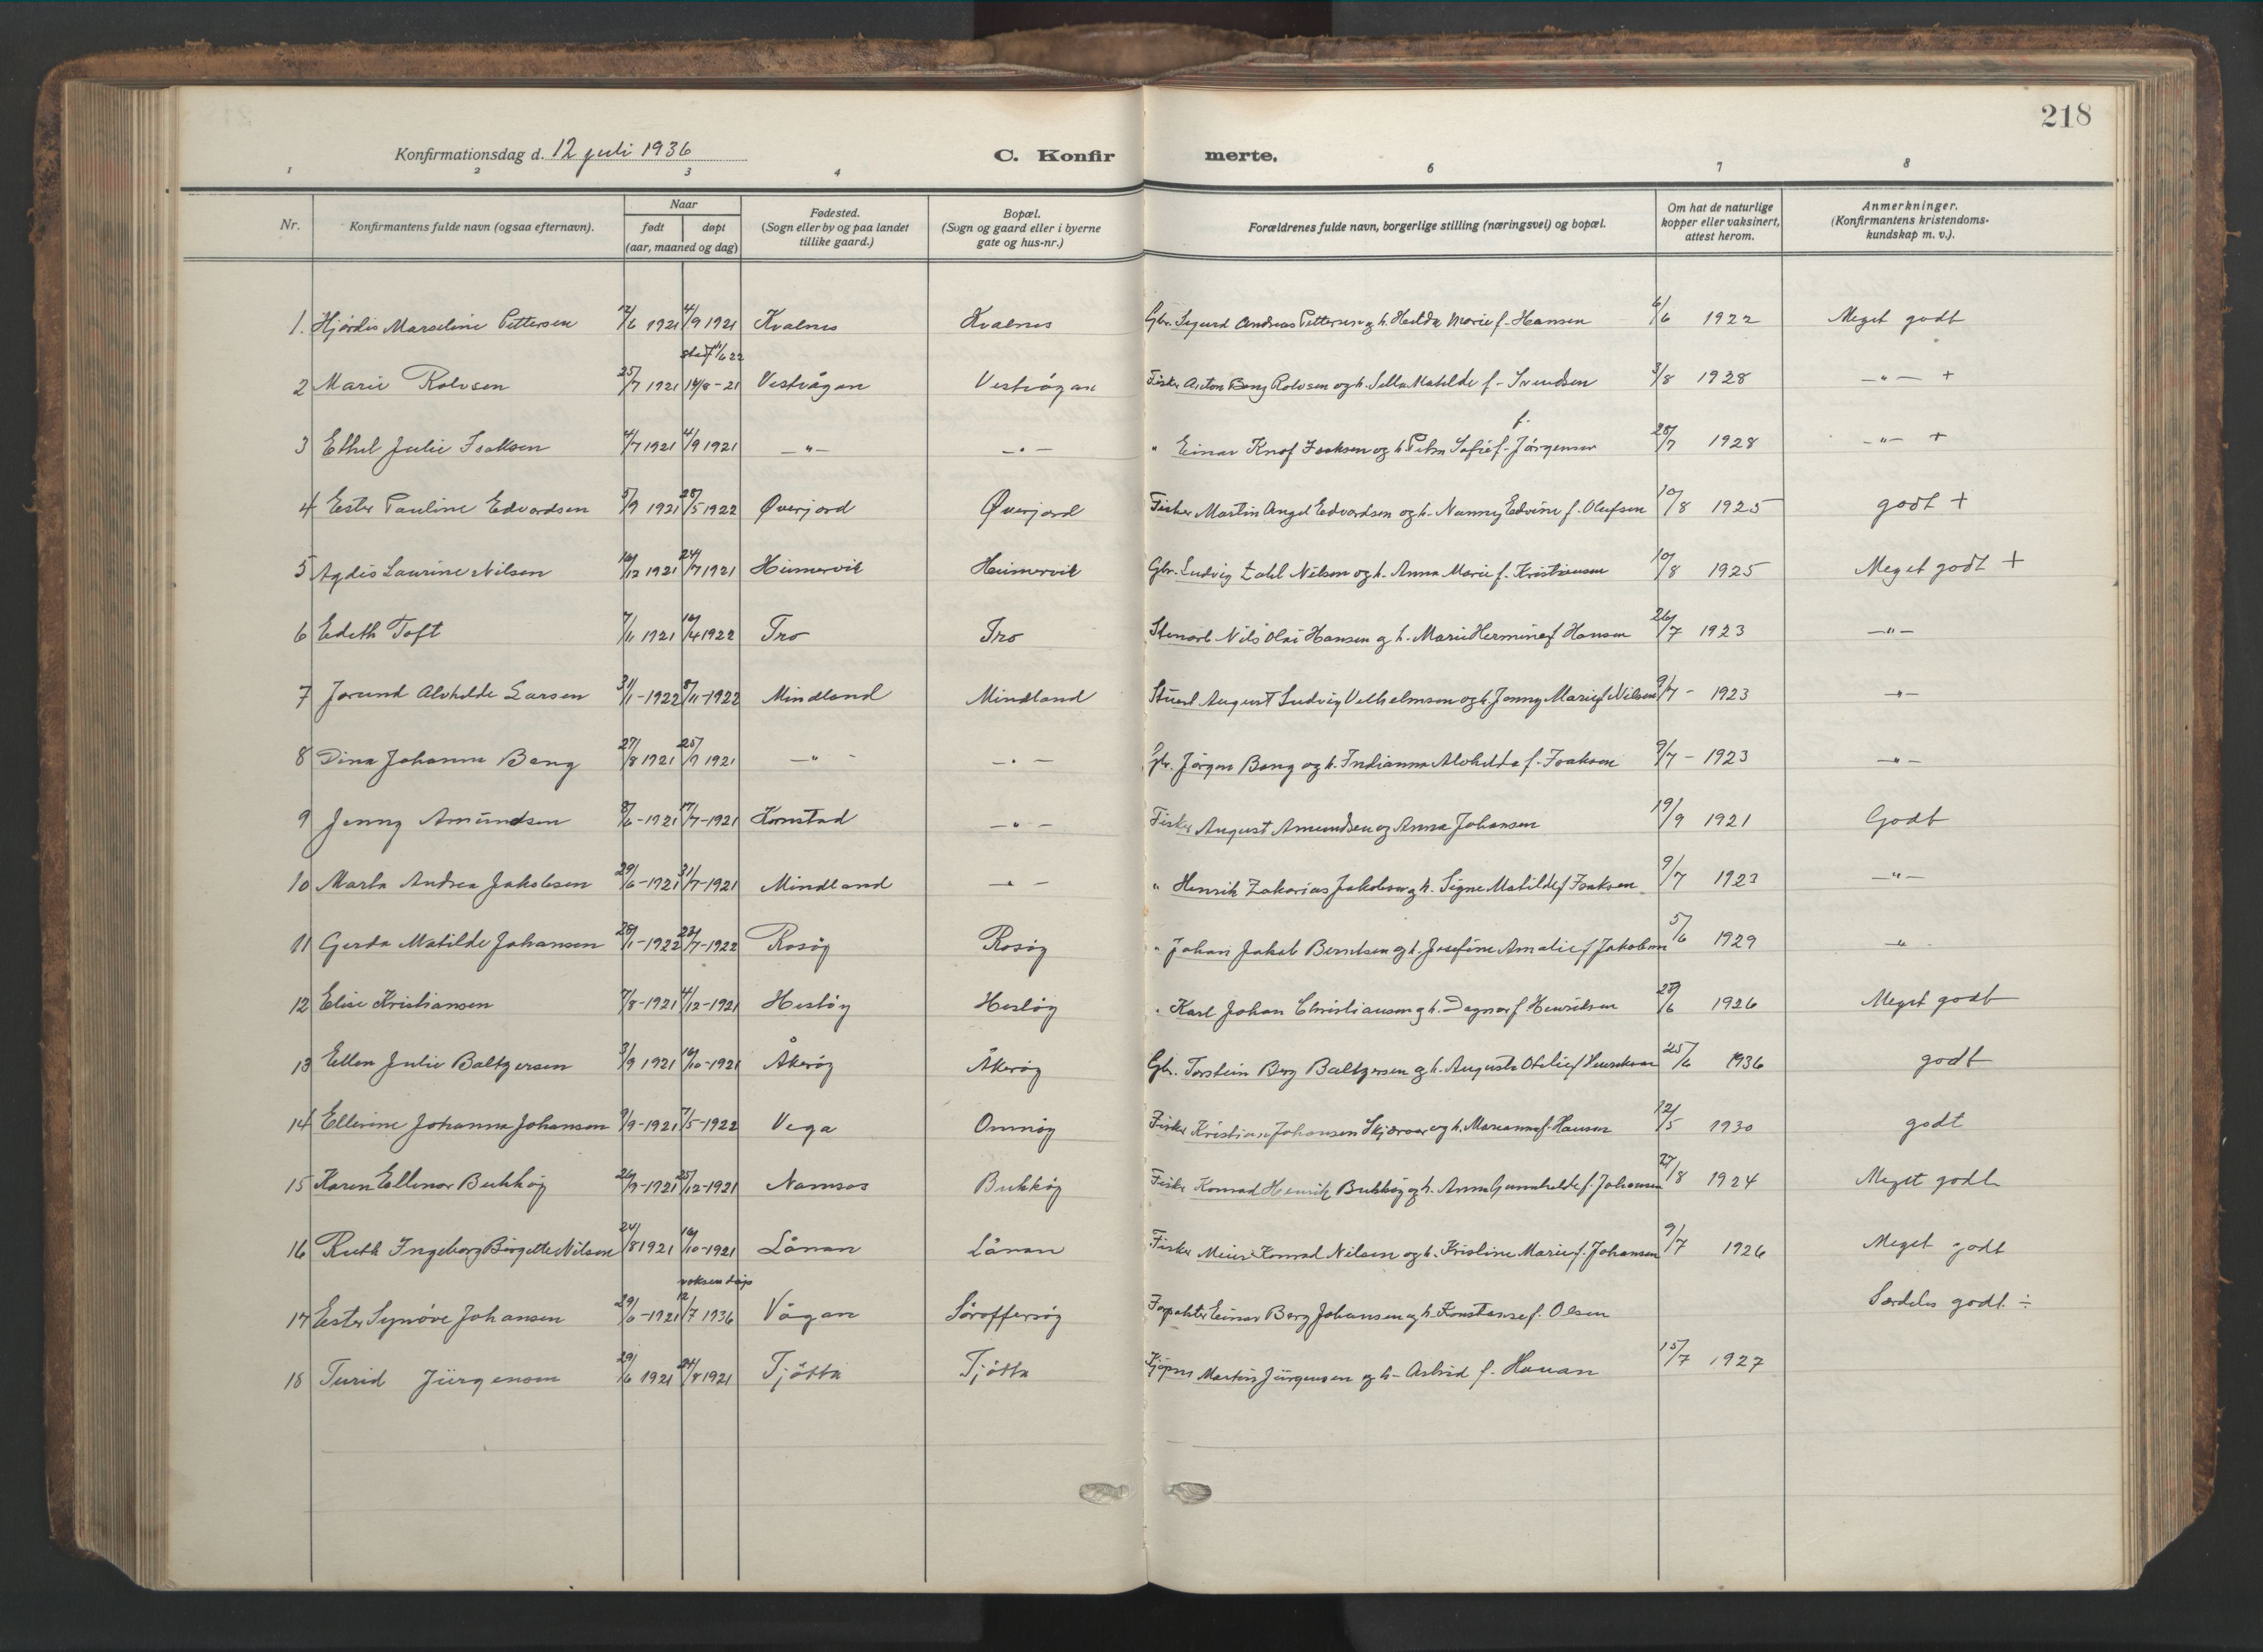 218
Konfirmationsdag d. 12 juli 1936 C. Konfir merte.
1 2 3 4 6 7 8
Nr. Konfirmantens fulde navn (ogsaa efternavn). Naar født døpt (aar, maaned og dag) Fødested. (Sogn eller by og paa landet tillike gaard.) Bopæl. (Sogn og gaard eller i byerne gate og hus-nr.) Forældrenes fulde navn, borgerlige stilling (næringsvei) og bopæl. Om hat de naturlige kopper eller vaksinert, attest herom. Anmerkninger. (Konfirmantens kristendoms-kundskap m. v.).
1. Hjørdis Marseline Pettersen 12/6 1921 4/9 1921 Kvalnes Kvalnes Gbr. Sigurd Andreas Pettersen og h. Hilda Marie f. Hansen 6/6 1922 Meget godt
stadf 11/6 22
2 Marie Rolvsen 25/7 1921 14/8-21 Vestvågan Vestvågan Fisker Anton Berg Rolvsen og h. Matilde f. Svendsen 3/8 1928 —"— +
f.
3 Ethel Julie Isaksen 4/7 1921 4/9 1921 —"— —"— " Einar Knof Isaksen og h. Petra Sofie f. Jørgensen 28/7 1928 —"— +
4 Ester Pauline Edvardsen 5/9 1921 28/5 1922 Øverjord Øverjord Fisker Martin Angel Edvardsen og h. Nanny Edvine f. Olufsen 10/8 1925 godt +
5 Agdis Laurine Nilsen 1921 24/7 1921 Heimervik Heimervik Gbr. Ludvig Zahl Nilsen og h. Anna Marie f. Kristiansen 10/8 1925 Meget godt +
6 Edith Toft 7/11 1921 16/4 1922 Tro Tro Stenarb Nils Olai Hansen og h. Marie Hermine f Hansen 26/7 1923 —"—
7 Jorund Alvhilde Larsen 31/1-1922 5/11-1922 Mindland Mindland August Ludvig Vilhelmsen og h. Jenny Marie f Nilsen 9/7- 1923 —"—
8 Dina Johanna Bang 27/8 1921 25/9 1921 —"— —"— Gbr. Jørgen Bang og h. Indianna Alvhilda f. Isaksen 9/7-1923 —"—
9 Jenny Amundsen 8/6-1921 17/7-1921 Kornstad —"— Fisker August Amundsen og Anna Johansen 19/9 1921 Godt
10 Marta Andrea Jakobsen 29/6-1921 31/7-1921 Mindland —"— " Henrik Zakarias Jakobsen og h. Signe Matilde f Isaksen 9/7 1923 —"—
11 Gerda Matilde Johansen 28/1-1922 23/7-1922 Rosøy Rosøy " Johan Jakob Berntsen og h. Josefine Amalie f Jakobsen 5/6 1929 —"—
12 Elise Kristiansen 7/8-1921 4/12-1921 Hestøy Hestøy " Karl Johan Christiansen og h. Dagmar f Henriksen 28/6 1926 Meget godt
13 Ellen Julie Baltzersen 3/9 1921 16/10-1921 Åkerøy Åkerøy Gbr. Torstein Berg Baltzersen og h. Augusta Otelie f Henriksen 25/6 1936 godt
14 Ellevine Johanna Johansen 9/9-1921 7/5-1922 Vega Omnøy Fisker Kristian Johansen Skjærvær og h. Marianna f. Hansen 12/5 1930 godt
15 Karen Ellinor Bukkøy 26/9-1921 25/12-1921 Namsos Bukkøy Fisker Konrad Henrik Bukkøy og h. Anna Gunnhilde f. Johansen 27/8 1924 Meget godt
16 Ruth Ingeborg Birgitte Nilsen 24/8 1921 16/10-1921 Lånan Lånan Fisker Konrad Nilsen og h. Kristine Marie f. Johansen 9/7 1926 Meget godt
voksendåp
17 Ester Synøve Johansen 29/6-1921 12/7 1936 Vågan Søroffersøy Forpakter Einar Berg Johansen og h. Konstanse f. Olsen Særdeles godt ÷
18 Turid Jürgensen 29/6 1921 24/8 1921 Tjøtta Tjøtta Kjøpm Martin Jürgensen og h- Astrid f. Hauan 15/7 1927